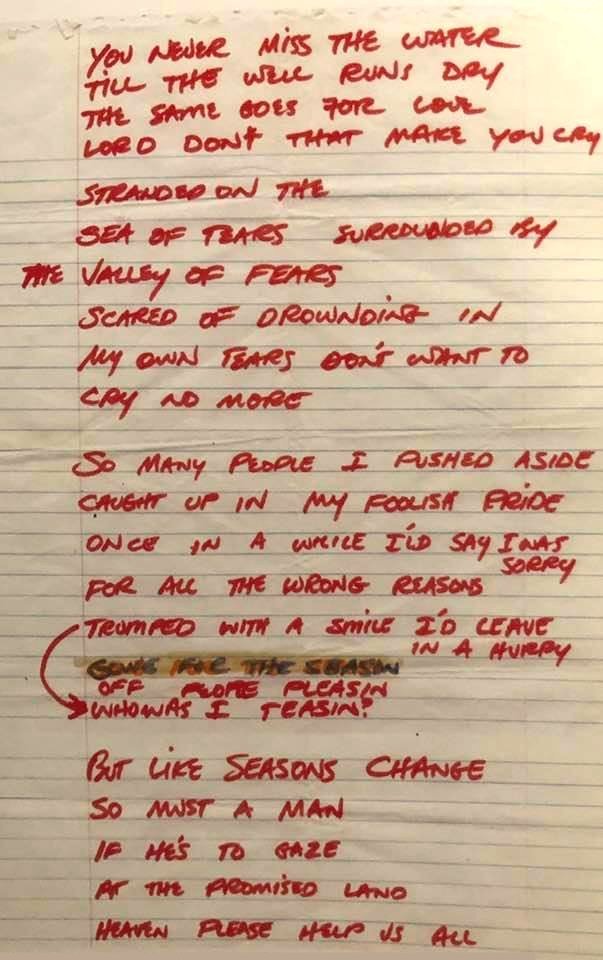 YOU NEVER MISS THE WATER
TILL THE WELL RUNS DRY
THE SAME GOES FOR LOVE
LORD DON'T THAT MAKE YOU CRY
STRANDED ON THE
SEA OF TEARS SURROUNDED BY
THE VALLEY OF FEARS
SCARED OF DROWNDING IN
MY OWN TEARS DON'T WANT TO
CRY NO MORE
SO MANY PEOPLE I PUSHED ASIDE
CAUGHT UP IN MY FOOLISH PRIDE
ONCE IN A WHILE I'D SAY I WAS
SORRY
FOR ALL THE WRONG REASONS
TRUMPED WITH A SMILE I'D LEAVE
IN A HURRY
GONE FOR THE SEASON
OFF PEOPLE PLEASIN
WHO WAS I TEASIN?
BUT LIKE SEASONS CHANGE
SO MUST A MAN
IF HE'S TO GAZE
AT THE PROMISED LAND
HEAVEN PLEASE HELP US ALL